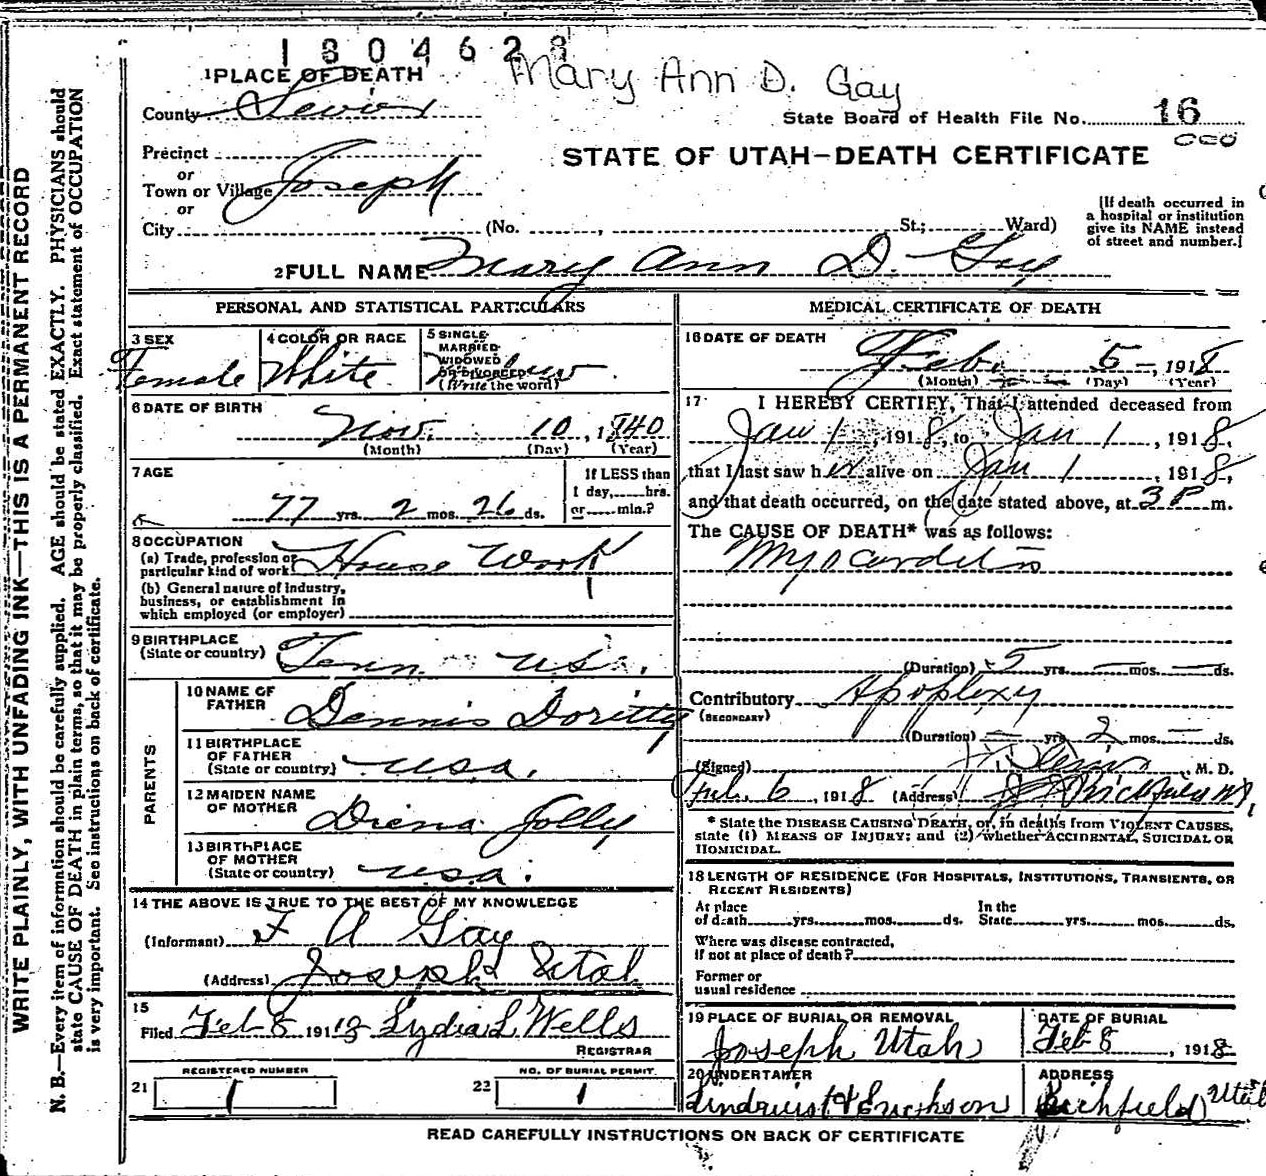 1804628
1 PLACE OF DEATH Mary Ann D. Gay
County Sevier
State Board of Health File No. 16
Precinct
or
Town or Village Joseph
or
City (No. , St.; Ward)
STATE OF UTAH—DEATH CERTIFICATE
[If death occurred in
a hospital or institution
give its NAME instead
of street and number.]
2 FULL NAME Mary Ann D. Gay
PERSONAL AND STATISTICAL PARTICULARS
3 SEX
Female
4 COLOR OR RACE
White
5 SINGLE
MARRIED
WIDOWED
OR DIVORCED
(Write the word)
6 DATE OF BIRTH
Nov. 10, 1840
(Month) (Day) (Year)
7 AGE
77 yrs. 2 mos. 26 ds.
If LESS than
1 day, hrs.
or min.?
8 OCCUPATION
(a) Trade, profession or
particular kind of work House Work
(b) General nature of industry,
business, or establishment in
which employed (or employer)
9 BIRTHPLACE
(State or country) Tenn U.S.
PARENTS
10 NAME OF
FATHER Dennis Doritty
11 BIRTHPLACE
OF FATHER
(State or country) U.S.A.
12 MAIDEN NAME
OF MOTHER Diena Jolly
13 BIRTHPLACE
OF MOTHER
(State or country) U.S.A.
14 THE ABOVE IS TRUE TO THE BEST OF MY KNOWLEDGE
(Informant) F A Gay
(Address) Joseph Utah
15
Filed Feb 8 1918 Lydia L Wells
REGISTRAR
REGISTERED NUMBER
21 1
NO. OF BURIAL PERMIT
22 1
MEDICAL CERTIFICATE OF DEATH
16 DATE OF DEATH
Feb. 5, 1918
(Month) (Day) (Year)
17 I HEREBY CERTIFY, That I attended deceased from
Jan 1, 1918, to Jan 1, 1918,
that I last saw her alive on Jan 1, 1918,
and that death occurred, on the date stated above, at 3 P m.
The CAUSE OF DEATH* was as follows:
Myocarditis
(Duration) 5 yrs. — mos. — ds.
Contributory Apoplexy
(SECONDARY)
(Duration) — yrs. 2 mos. — ds.
(Signed) M. D.
Feb. 6, 1918 (Address) Richfield
* State the DISEASE CAUSING DEATH, or, in deaths from VIOLENT CAUSES,
state (1) MEANS OF INJURY; and (2) whether ACCIDENTAL, SUICIDAL OR
HOMICIDAL.
18 LENGTH OF RESIDENCE (FOR HOSPITALS, INSTITUTIONS, TRANSIENTS, OR
RECENT RESIDENTS)
At place
of death yrs. mos. ds.
In the
State yrs. mos. ds.
Where was disease contracted,
if not at place of death?
Former or
usual residence
19 PLACE OF BURIAL OR REMOVAL
Joseph Utah
DATE OF BURIAL
Feb 8, 1918
20 UNDERTAKER
Lindquist & Erickson
ADDRESS
Richfield Utah
READ CAREFULLY INSTRUCTIONS ON BACK OF CERTIFICATE
WRITE PLAINLY, WITH UNFADING INK—THIS IS A PERMANENT RECORD
N. B.—Every item of information should be carefully supplied. AGE should be stated EXACTLY. PHYSICIANS should
state CAUSE OF DEATH in plain terms, so that it may be properly classified. Exact statement of OCCUPATION
is very important. See instructions on back of certificate.